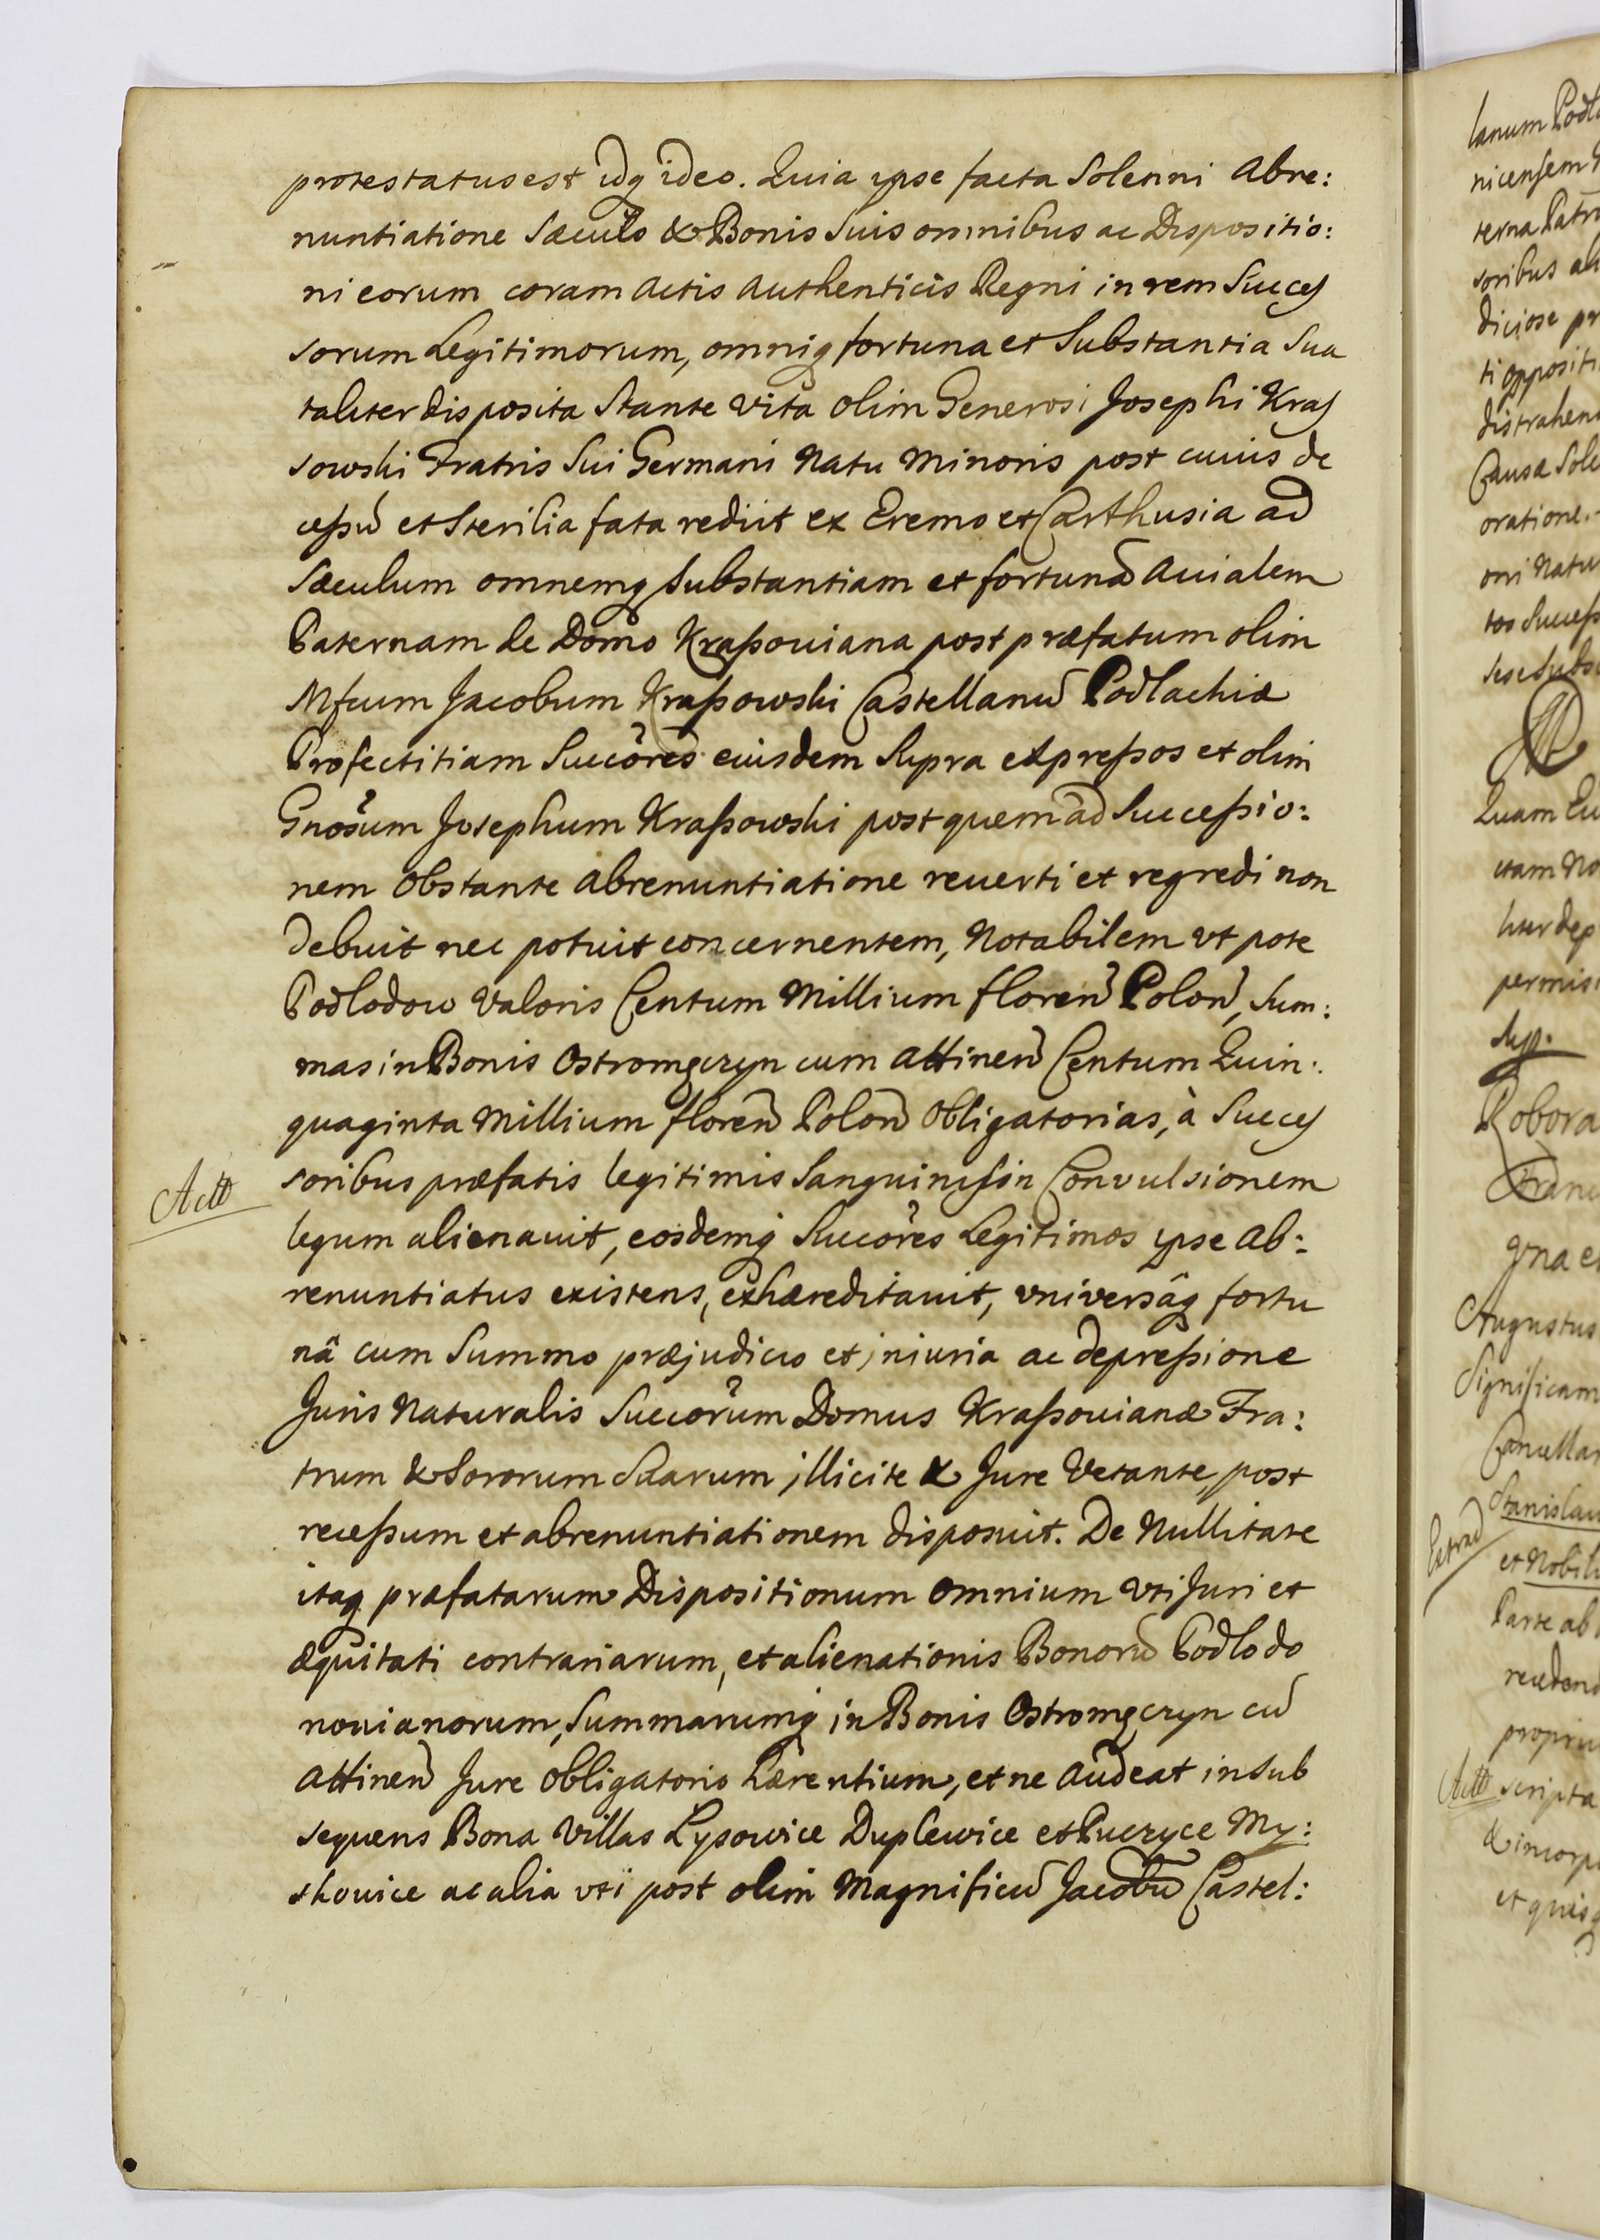 protestatus est idq ideo. Quia ipse facta Solenni Abre:
nuntiatione Sæculo & Bonis Suis omnibus ac Dispositio:
ni eorum coram Actis Authenticis Regni in rem Succes
sorum Legitimorum, omniq fortuna et Substantia Sua
taliter disposita Stante Vita olim Generosi Josephi Kras
sowski Fratris Sui Germani Natu Minoris post cuius de
cessu et Sterilia fata rediit ex Eremo et Carthusia ad
Sæculum omnemq substantiam et fortunã Auialem
Paternam de Domo Krassouiana post præfatum olim
Mfcum Jacobum Krassowski Castellanũ Podlachiæ
Profectitiam Succõres eiusdem Supra expressos et olim
Gnõsum Josephum Krassowski post quem ad Successio:
nem Obstante Abrenuntiatione reuerti et regredi non
debuit nec potuit concernentem, Notabilem vt pote
Podlodow Valoris Centum Millium floren Polon, Sum:
mas in Bonis Ostromęczyn cum Attinen Centum Quin:
quaginta Millium floren Polon Obligatorias, à Succes
soribus præfatis legitimis Sanguinis in Convulsionem
Actt
legum alienauit, eosdemq Succõres Legitimos ipse Ab:
renuntiatus existens, exhæreditauit, vniversâq fortu
nâ cum Summo præjudicio et injuria ac depressione
Juris Naturalis Succõrum Domus Krassouianæ Fra:
trum & Sororum Suarum jllicite & Jure Vetante, post
recessum et abrenuntiationem disposuit. De Nullitate
itaq præfatarum Dispositionum omnium vti Juri et
æquitati contrariarum, et alienationis Bonorũ Podlodo
nouianorum, Summarumq in Bonis Ostromęczyn cũ
Attinen Jure Obligatorio hærentium, et ne Audeat in sub
sequens Bona Villas Lysowice Duplewice et Puczyce My:
skouice ac alia vti post olim Magnificũ Jacobũ Castel:
lanum
nicensem
terna
soribus
ti
distrahen
Causæ
oratione.
oni Natu
Quam
permis
Sup.
Robora
Augustus
Significam
Stanislau
et Nobili
Extrad
Parte ab
propriu
Actt scripta
& incorp